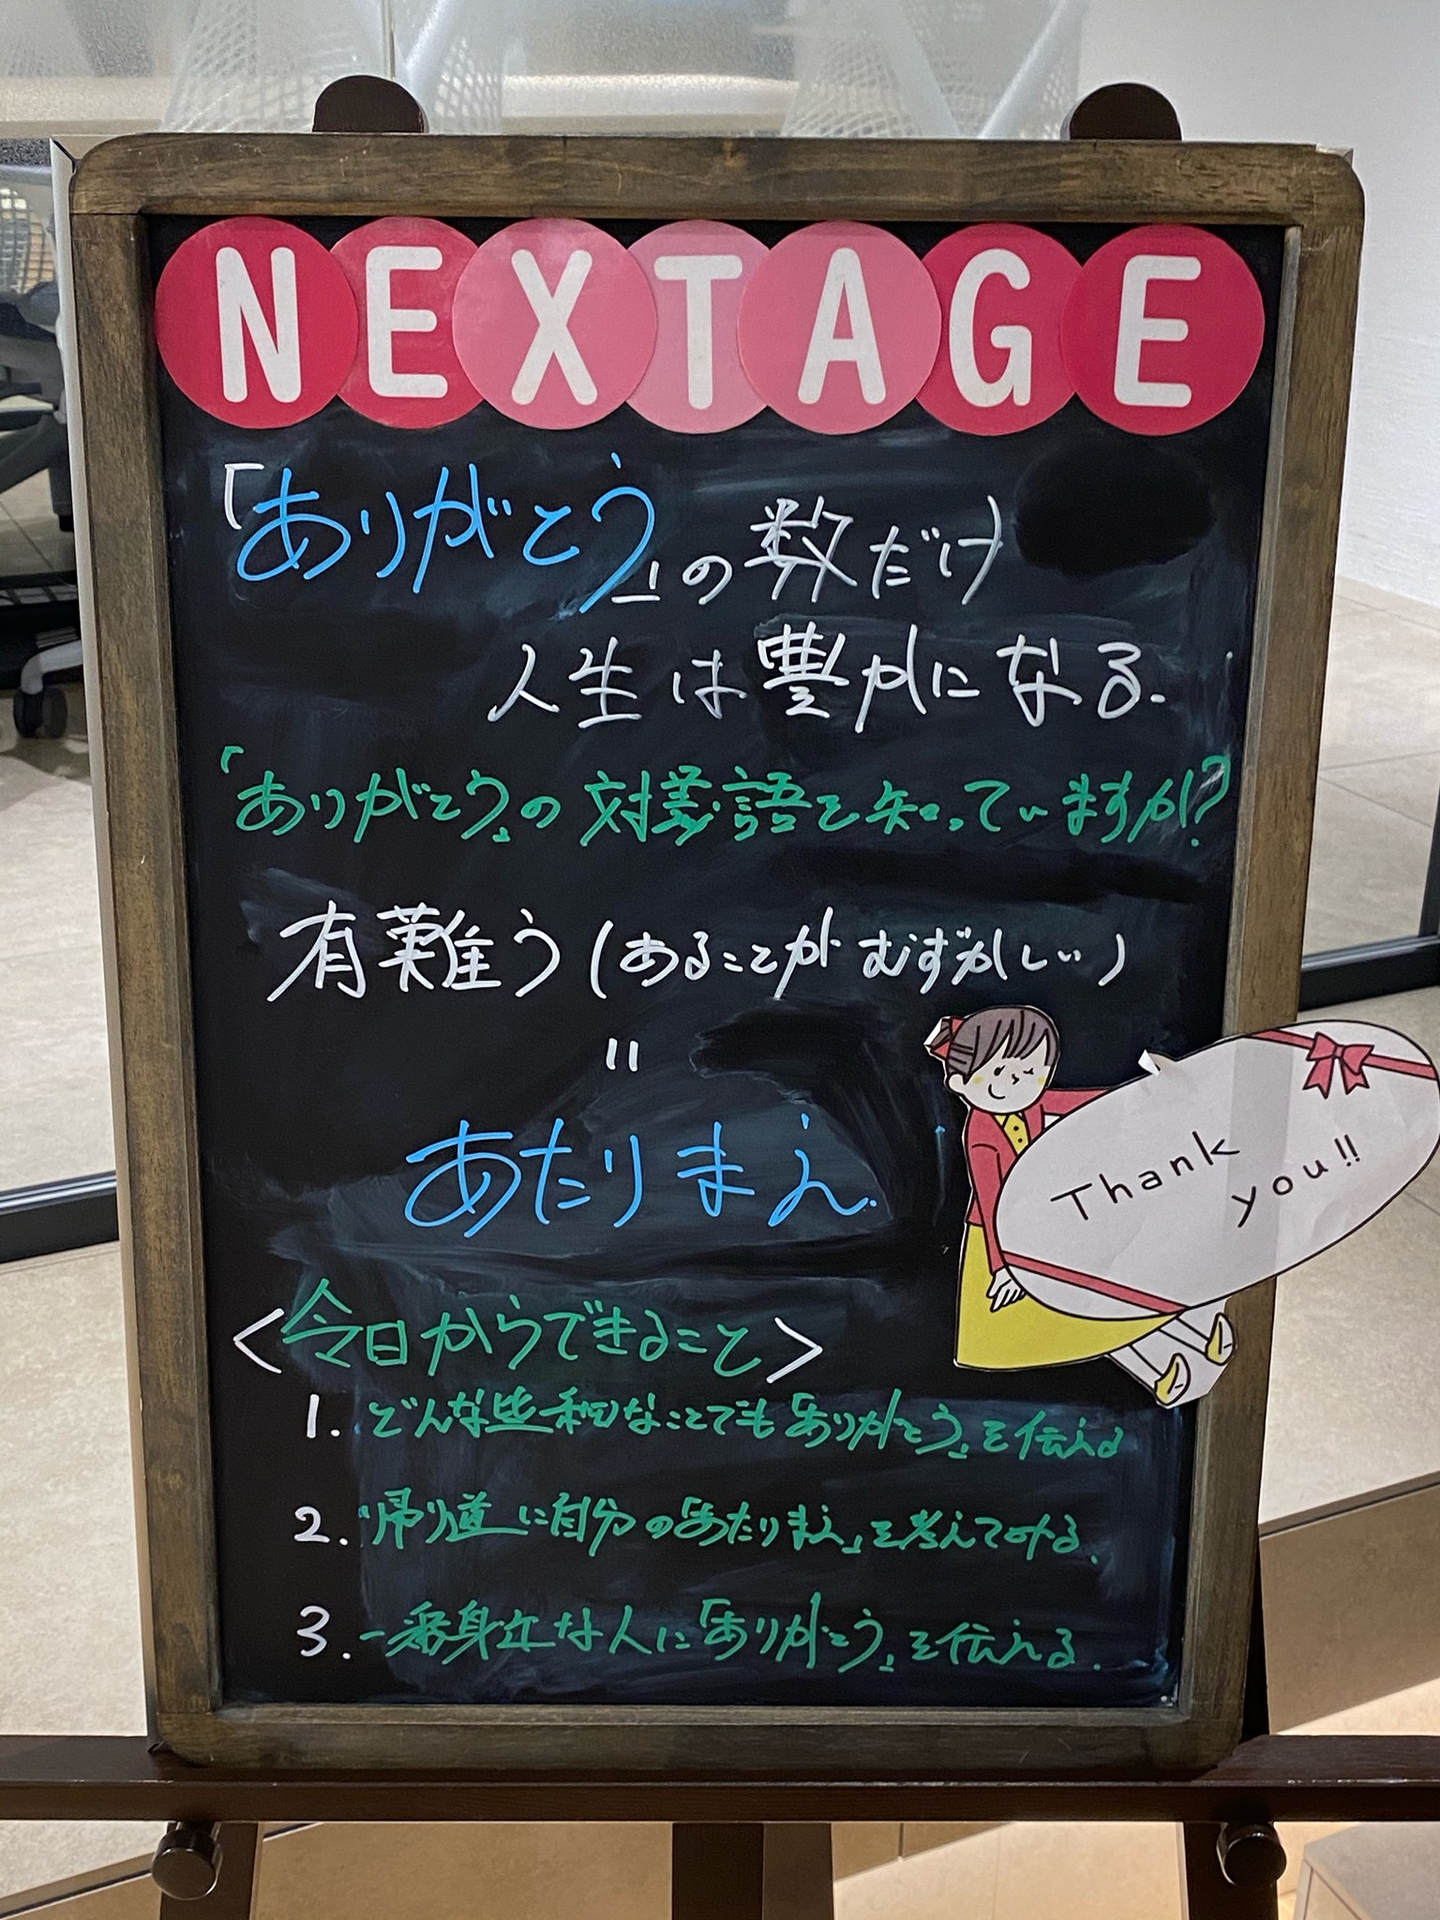 NEXTAGE
「ありがとう」の数だけ
人生は豊かになる.
「ありがとう」の対義語を知っていますか?
有難う(あることがむずかしい)
=
あたりまえ.
Thank
you!!
<今日からできること>
1. どんな些細なことでも「ありがとう」を伝える
2. 帰り道に自分の「あたりまえ」を考えてみる.
3. 一番身近な人に「ありがとう」を伝える.